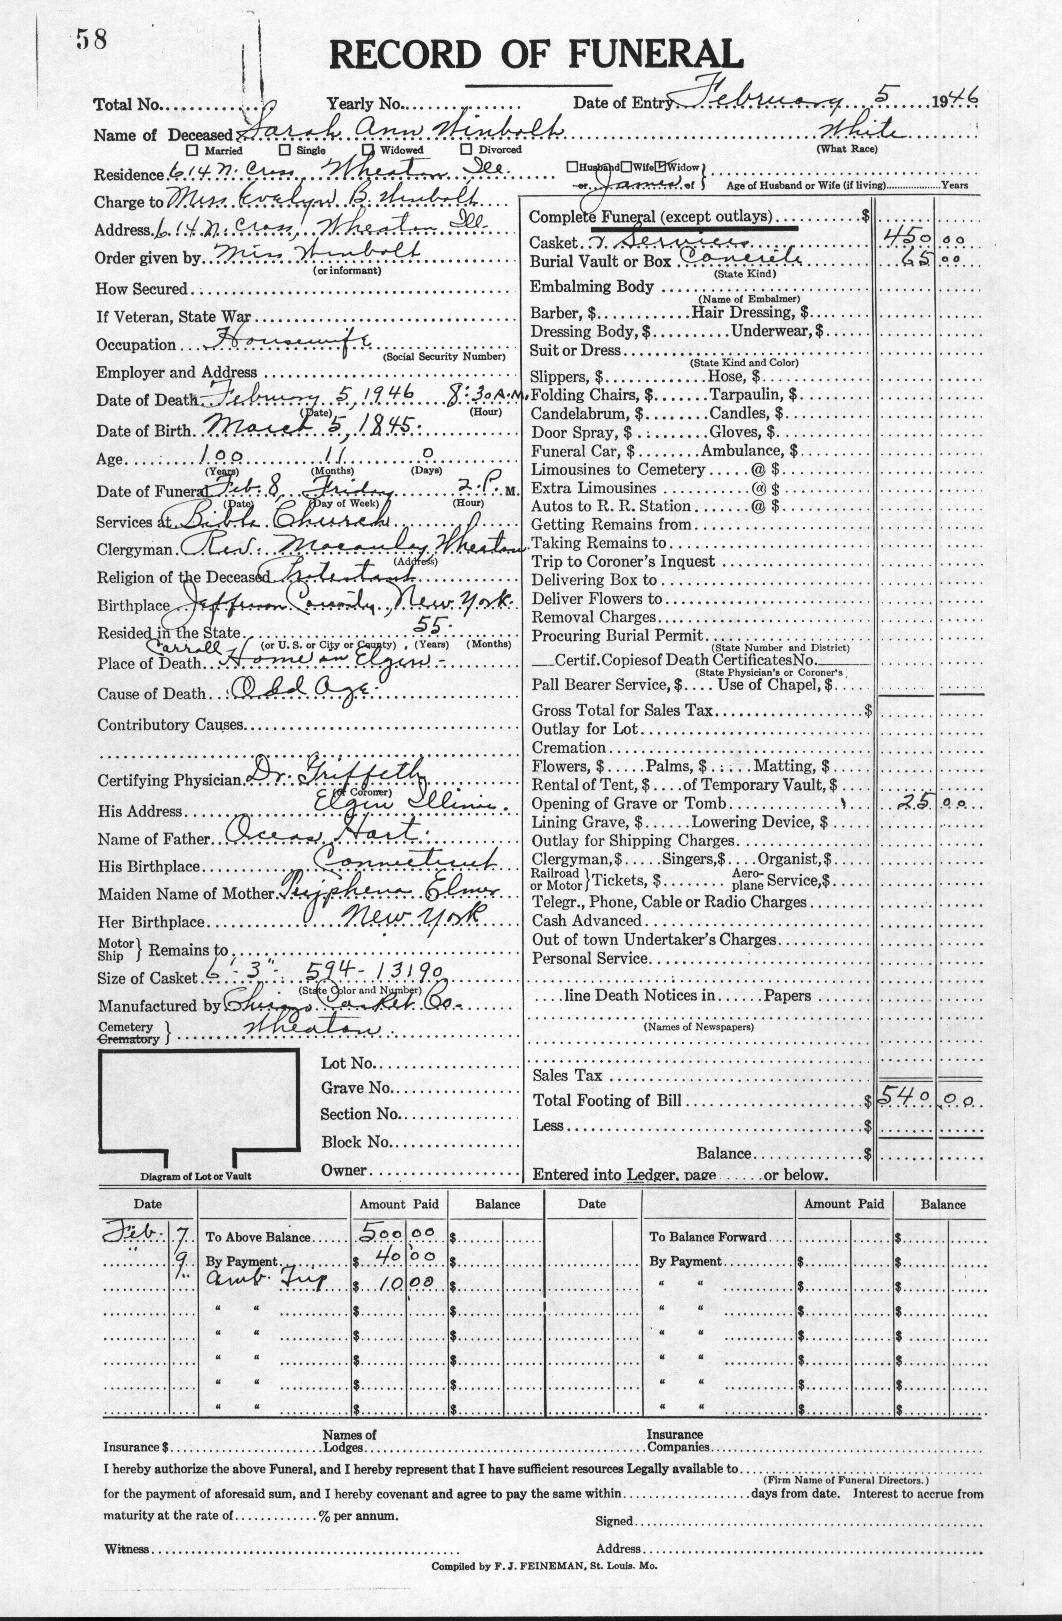 58
RECORD OF FUNERAL
Total No. Yearly No. Date of Entry February 5 1946
Name of Deceased Sarah Ann Winbolt White
Married Single Widowed Divorced (What Race)
Residence 614 N. Cross, Wheaton Ill. Husband Wife Widow
or James of Age of Husband or Wife (if living) Years
Charge to Miss Evelyn B. Winbolt
Address 614 N Cross, Wheaton Ill.
Order given by Miss Winbolt
(or informant)
How Secured
If Veteran, State War
Occupation Housewife
(Social Security Number)
Employer and Address
Date of Death February 5, 1946 8:30 A.M.
(Date) (Hour)
Date of Birth March 5, 1845.
Age 100 11 0
(Years) (Months) (Days)
Date of Funeral Feb. 8, Friday 2 P. M.
(Date) (Day of Week) (Hour)
Services at Bible Church
Clergyman Rev. Macauley Wheaton
(Address)
Religion of the Deceased Protestant
Birthplace Jefferson County, New York.
Resided in the State 55
(or U. S. or City or County) (Years) (Months)
Carroll
Place of Death Home in Elgin -
Cause of Death Old Age.
Contributory Causes
Certifying Physician Dr. Griffeth
(or Coroner)
His Address Elgin Illinois.
Name of Father Hart.
His Birthplace Connecticut
Maiden Name of Mother Elmer
Her Birthplace New York
Motor Ship } Remains to
Size of Casket 6'-3" 594-13190
(State Color and Number)
Manufactured by Chicago Casket Co.
Cemetery
Crematory } Wheaton.
Lot No.
Grave No.
Section No.
Block No.
Owner
Diagram of Lot or Vault
Complete Funeral (except outlays) $
Casket & Services 450 00
Burial Vault or Box Concrete 65 00
(State Kind)
Embalming Body
(Name of Embalmer)
Barber, $ Hair Dressing, $
Dressing Body, $ Underwear, $
Suit or Dress
(State Kind and Color)
Slippers, $ Hose, $
Folding Chairs, $ Tarpaulin, $
Candelabrum, $ Candles, $
Door Spray, $ Gloves, $
Funeral Car, $ Ambulance, $
Limousines to Cemetery @ $
Extra Limousines @ $
Autos to R. R. Station @ $
Getting Remains from
Taking Remains to
Trip to Coroner's Inquest
Delivering Box to
Deliver Flowers to
Removal Charges
Procuring Burial Permit
(State Number and District)
Certif. Copies of Death Certificates No.
(State Physician's or Coroner's
Pall Bearer Service, $ Use of Chapel, $
Gross Total for Sales Tax $
Outlay for Lot
Cremation
Flowers, $ Palms, $ Matting, $
Rental of Tent, $ of Temporary Vault, $
Opening of Grave or Tomb 25 00
Lining Grave, $ Lowering Device, $
Outlay for Shipping Charges
Clergyman, $ Singers, $ Organist, $
Railroad or Motor } Tickets, $ Aeroplane Service, $
Telegr., Phone, Cable or Radio Charges
Cash Advanced
Out of town Undertaker's Charges
Personal Service
line Death Notices in Papers
(Names of Newspapers)
Sales Tax
Total Footing of Bill $ 540 00
Less $
Balance $
Entered into Ledger, page or below.
Date Amount Paid Balance Date Amount Paid Balance
Feb. 7 To Above Balance 500 00 $ To Balance Forward $
" 9 By Payment $ 40 00 $ By Payment $ $
" Amb. Trip $ 10 00 $ " " $ $
" " $ $ " " $ $
" " $ $ " " $ $
" " $ $ " " $ $
" " $ $ " " $ $
" " $ $ " " $ $
Insurance $ Names of Lodges Insurance Companies
I hereby authorize the above Funeral, and I hereby represent that I have sufficient resources Legally available to
(Firm Name of Funeral Directors.)
for the payment of aforesaid sum, and I hereby covenant and agree to pay the same within days from date. Interest to accrue from
maturity at the rate of % per annum.
Signed
Witness Address
Compiled by F. J. FEINEMAN, St. Louis. Mo.